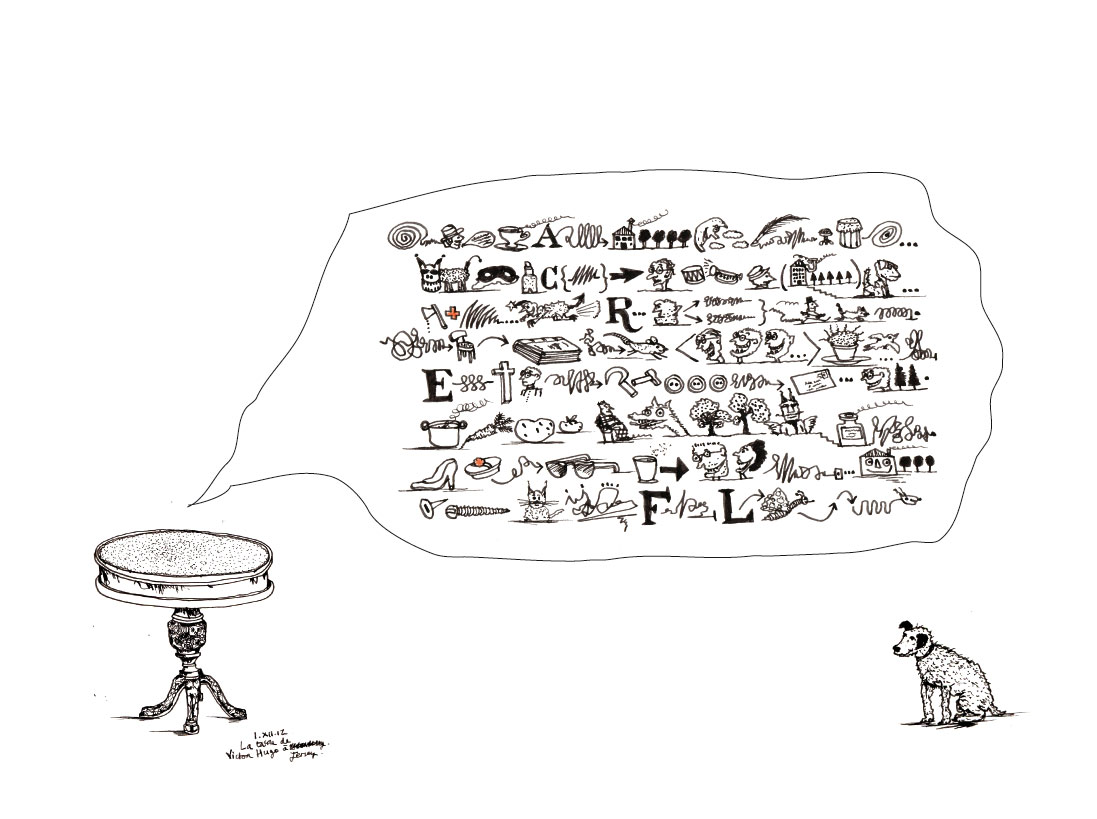 A
C
R
E
F L
1.XII.12
La table de
Victor Hugo à
Jersey.